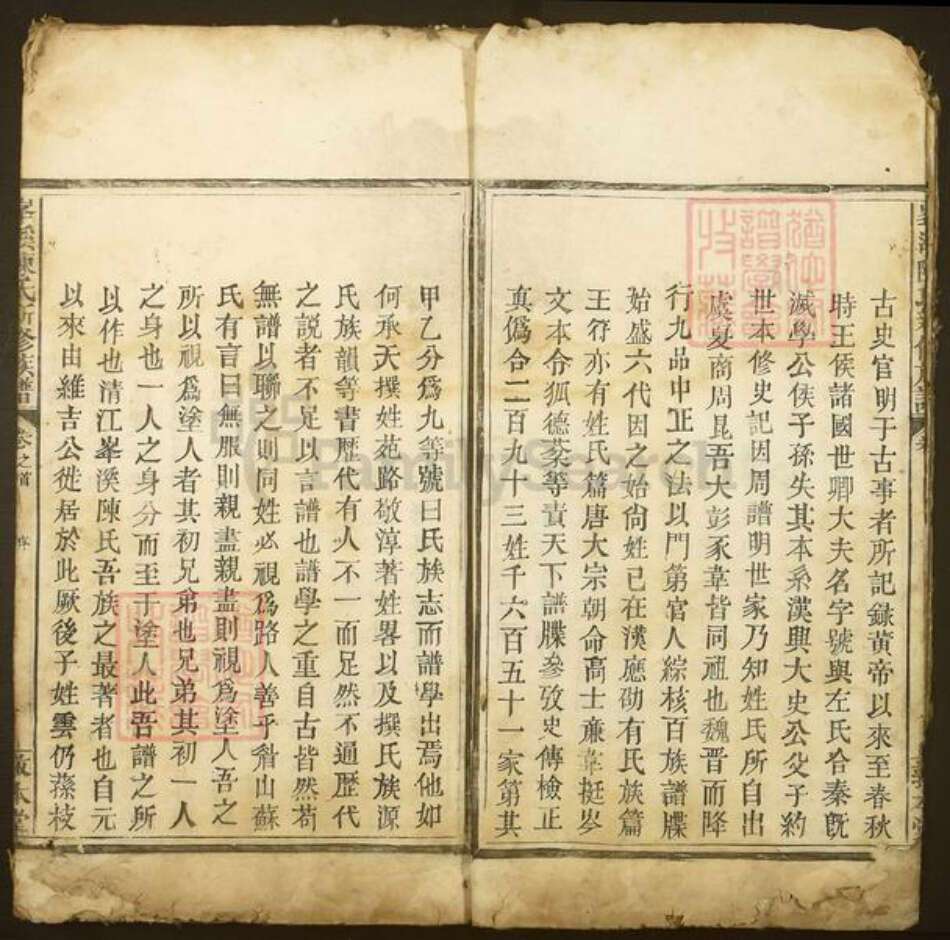 古史官明于古事者所記錄黃帝以來至春秋
時王侯諸國世卿大夫名字號與左氏合秦旣
滅學公侯子孫失其本系漢興大史公父子約
世本修史記因周譜明世家乃知姓氏所自出
虞夏商周昆吾大彭豕韋皆同祖也魏晋而降
行九品中正之法以門第官人綜核百族譜牒
始盛六代因之始尙姓已在漢應劭有氏族篇
王符亦有姓氏篇唐大宗朝命高士廉韋挺岑
文本令狐德棻等責天下譜牒參攷史傳檢正
真僞合二百九十三姓千六百五十一家第其
甲乙分爲九等號曰氏族志而譜學出焉他如
何承天撰姓苑路敬淳著姓畧以及撰氏族源
氏族韻等書歷代有人不一而足然不通歷代
之說者不足以言譜也譜學之重自古皆然苟
無譜以聯之則同姓必視爲路人善乎眉山蘇
氏有言曰無服則親盡親盡則視爲塗人吾之
所以視爲塗人者其初兄弟也兄弟其初一人
之身也一人之身分而至于塗人此吾譜之所
以作也清江峯溪陳氏吾族之最著者也自元
以來由維吉公徙居於此厥後子姓雲仍蓀枝
峯溪陳氏新修族譜 卷之首 序 敬本堂
FamilySearch